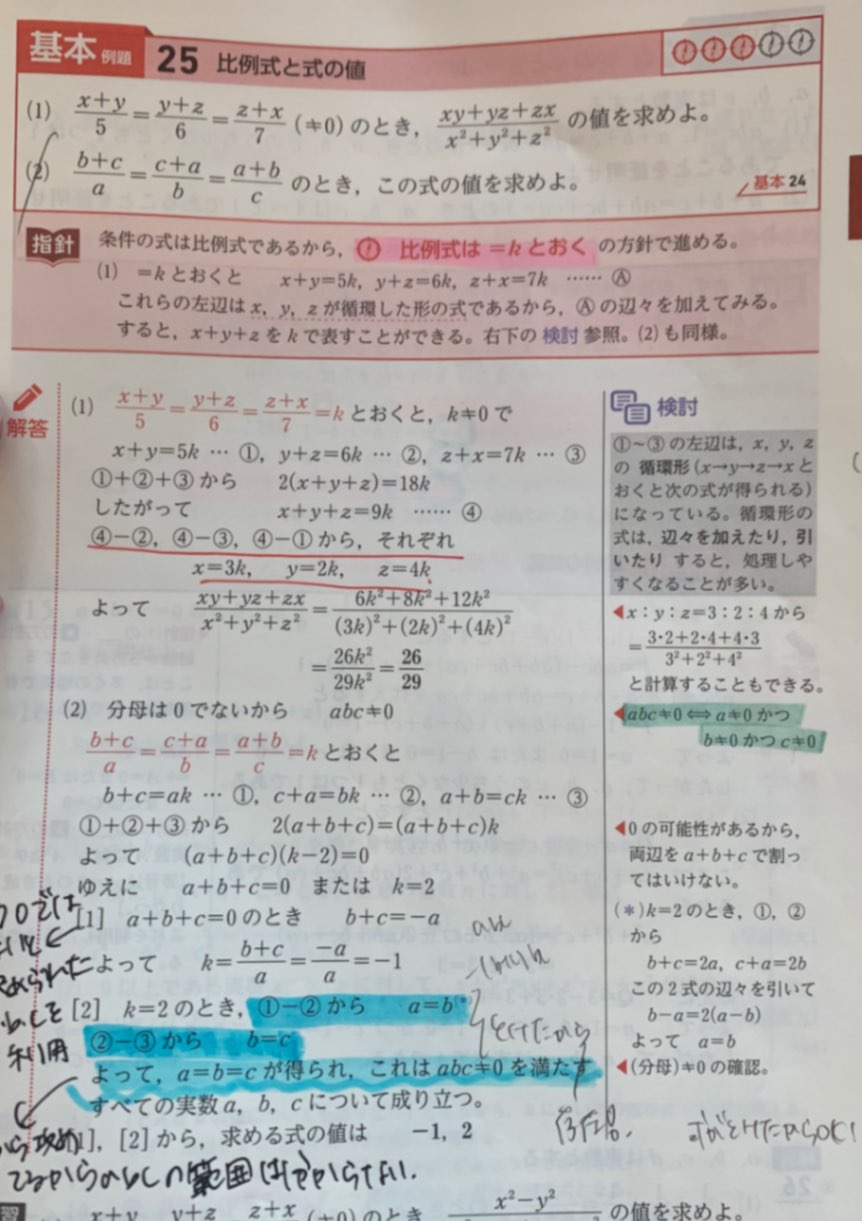 基本 例題 25 比例式と式の値
(1) (x+y)/5=(y+z)/6=(z+x)/7 (≠0) のとき，(xy+yz+zx)/(x²+y²+z²) の値を求めよ。
(2) (b+c)/a=(c+a)/b=(a+b)/c のとき，この式の値を求めよ。
基本 24
指針 条件の式は比例式であるから， 比例式は =k とおく の方針で進める。
(1) =k とおくと x+y=5k, y+z=6k, z+x=7k …… Ⓐ
これらの左辺は x, y, z が循環した形の式であるから，Ⓐ の辺々を加えてみる。
すると，x+y+z を k で表すことができる。右下の 検討 参照。(2) も同様。
解答
(1) (x+y)/5=(y+z)/6=(z+x)/7=k とおくと，k≠0 で
x+y=5k … ①, y+z=6k … ②, z+x=7k … ③
①+②+③ から 2(x+y+z)=18k
したがって x+y+z=9k …… ④
④−②, ④−③, ④−① から，それぞれ
x=3k, y=2k, z=4k
よって (xy+yz+zx)/(x²+y²+z²)=(6k²+8k²+12k²)/((3k)²+(2k)²+(4k)²)
=26k²/29k²=26/29
(2) 分母は 0 でないから abc≠0
(b+c)/a=(c+a)/b=(a+b)/c=k とおくと
b+c=ak … ①, c+a=bk … ②, a+b=ck … ③
①+②+③ から 2(a+b+c)=(a+b+c)k
よって (a+b+c)(k−2)=0
ゆえに a+b+c=0 または k=2
[1] a+b+c=0 のとき b+c=−a
よって k=(b+c)/a=(−a)/a=−1
[2] k=2 のとき，①−② から a=b
②−③ から b=c
よって，a=b=c が得られ，これは abc≠0 を満たす
すべての実数 a, b, c について成り立つ。
[1], [2] から，求める式の値は −1, 2
検討
①～③ の左辺は，x, y, z
の 循環形 (x→y→z→x と
おくと次の式が得られる)
になっている。循環形の
式は，辺々を加えたり，引
いたり すると，処理しや
すくなることが多い。
◀x：y：z=3：2：4 から
=(3・2+2・4+4・3)/(3²+2²+4²)
と計算することもできる。
◀abc≠0 ⇔ a≠0 かつ
b≠0 かつ c≠0
◀0 の可能性があるから，
両辺を a+b+c で割っ
てはいけない。
(*) k=2 のとき，①, ②
から
b+c=2a, c+a=2b
この 2 式の辺々を引いて
b−a=2(a−b)
よって a=b
◀(分母)≠0 の確認。
利用
の範囲は分からない.
(x+y) (y+z) (z+x) (≠0) のとき x²−y² の値を求めよ。